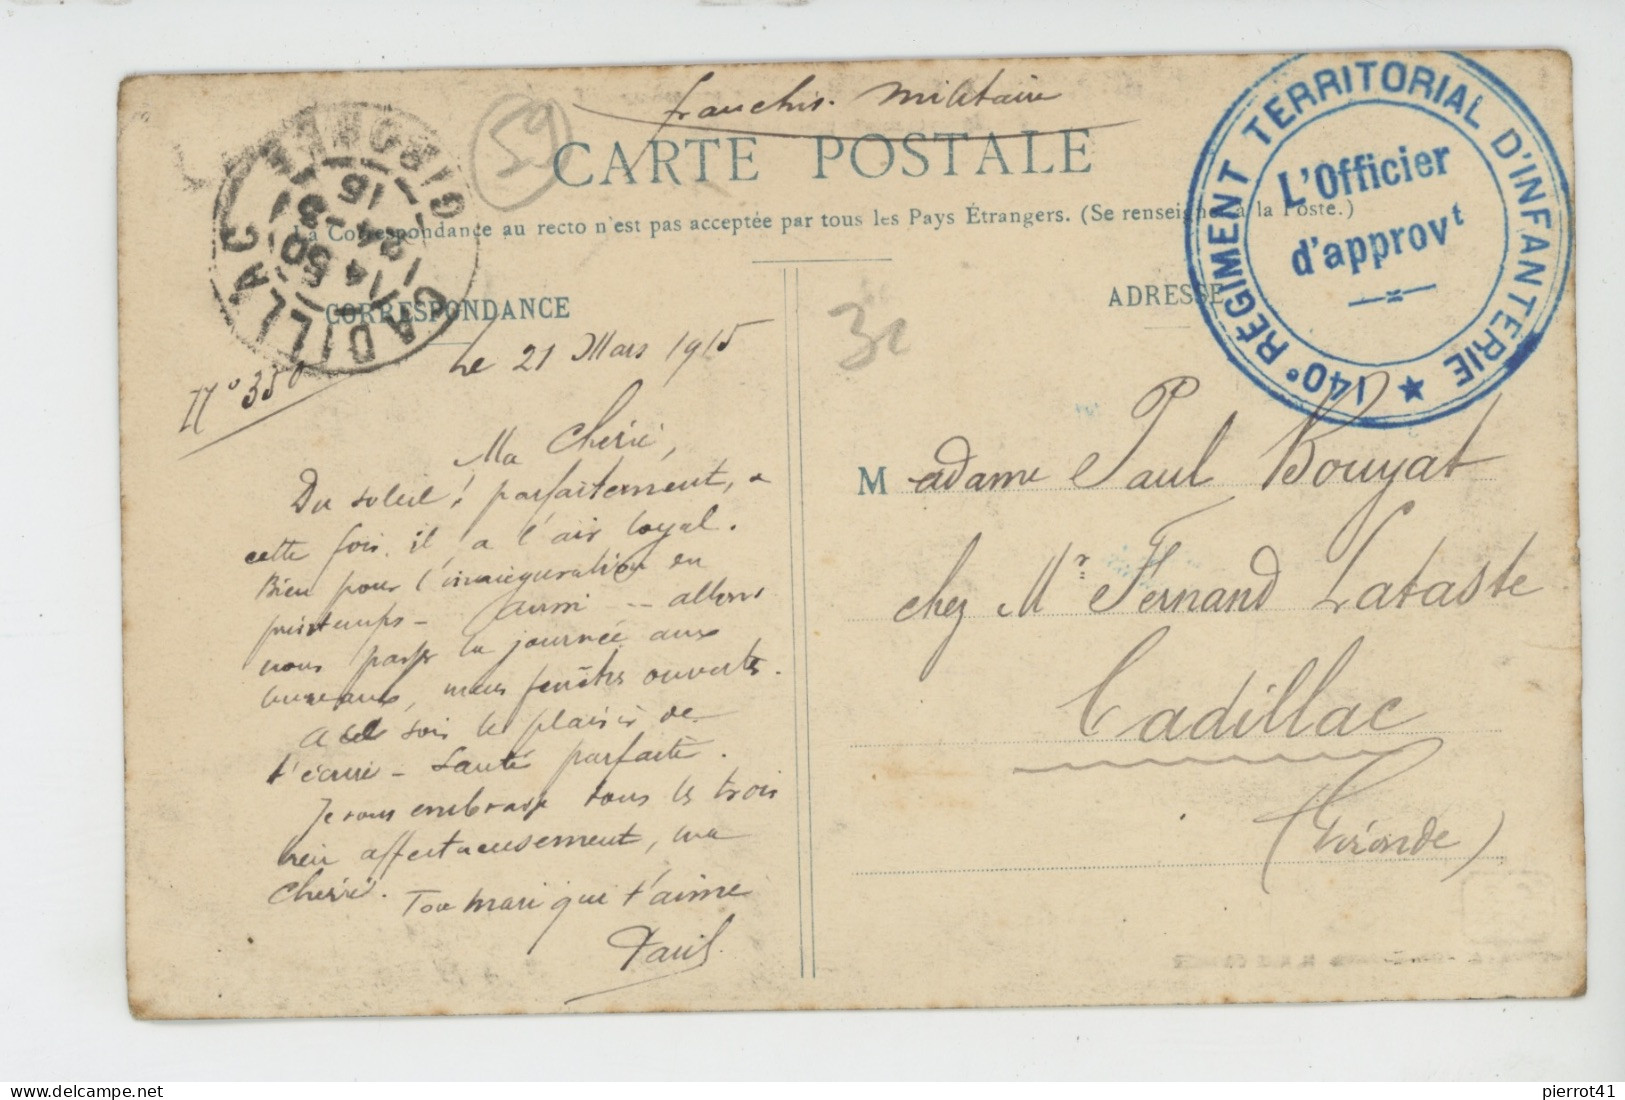 franchise militaire
59
CARTE POSTALE
La Correspondance au recto n'est pas acceptée par tous les Pays Étrangers. (Se renseigner à la Poste.)
CORRESPONDANCE
ADRESSE
CADILLAC GIRONDE
14 50
24 -3
15
140e RÉGIMENT TERRITORIAL D'INFANTERIE
L'Officier
d'approvt
Le 21 Mars 1915
No 350
Ma Chérie,
Du soleil! parfaitement, &
cette fois, il a l'air loyal.
Bien pour l'inauguration du
printemps - Aussi -- allons
nous passer la journée aux
bureaux, mais fenêtres ouvertes.
A ce soir le plaisir de
t'écrire - Santé parfaite.
Je vous embrasse tous les trois
bien affectueusement, ma
chérie. Ton mari qui t'aime
Paul
Madame Paul Bouyat
chez Mr Fernand Lataste
Cadillac
(Gironde)
pierrot41